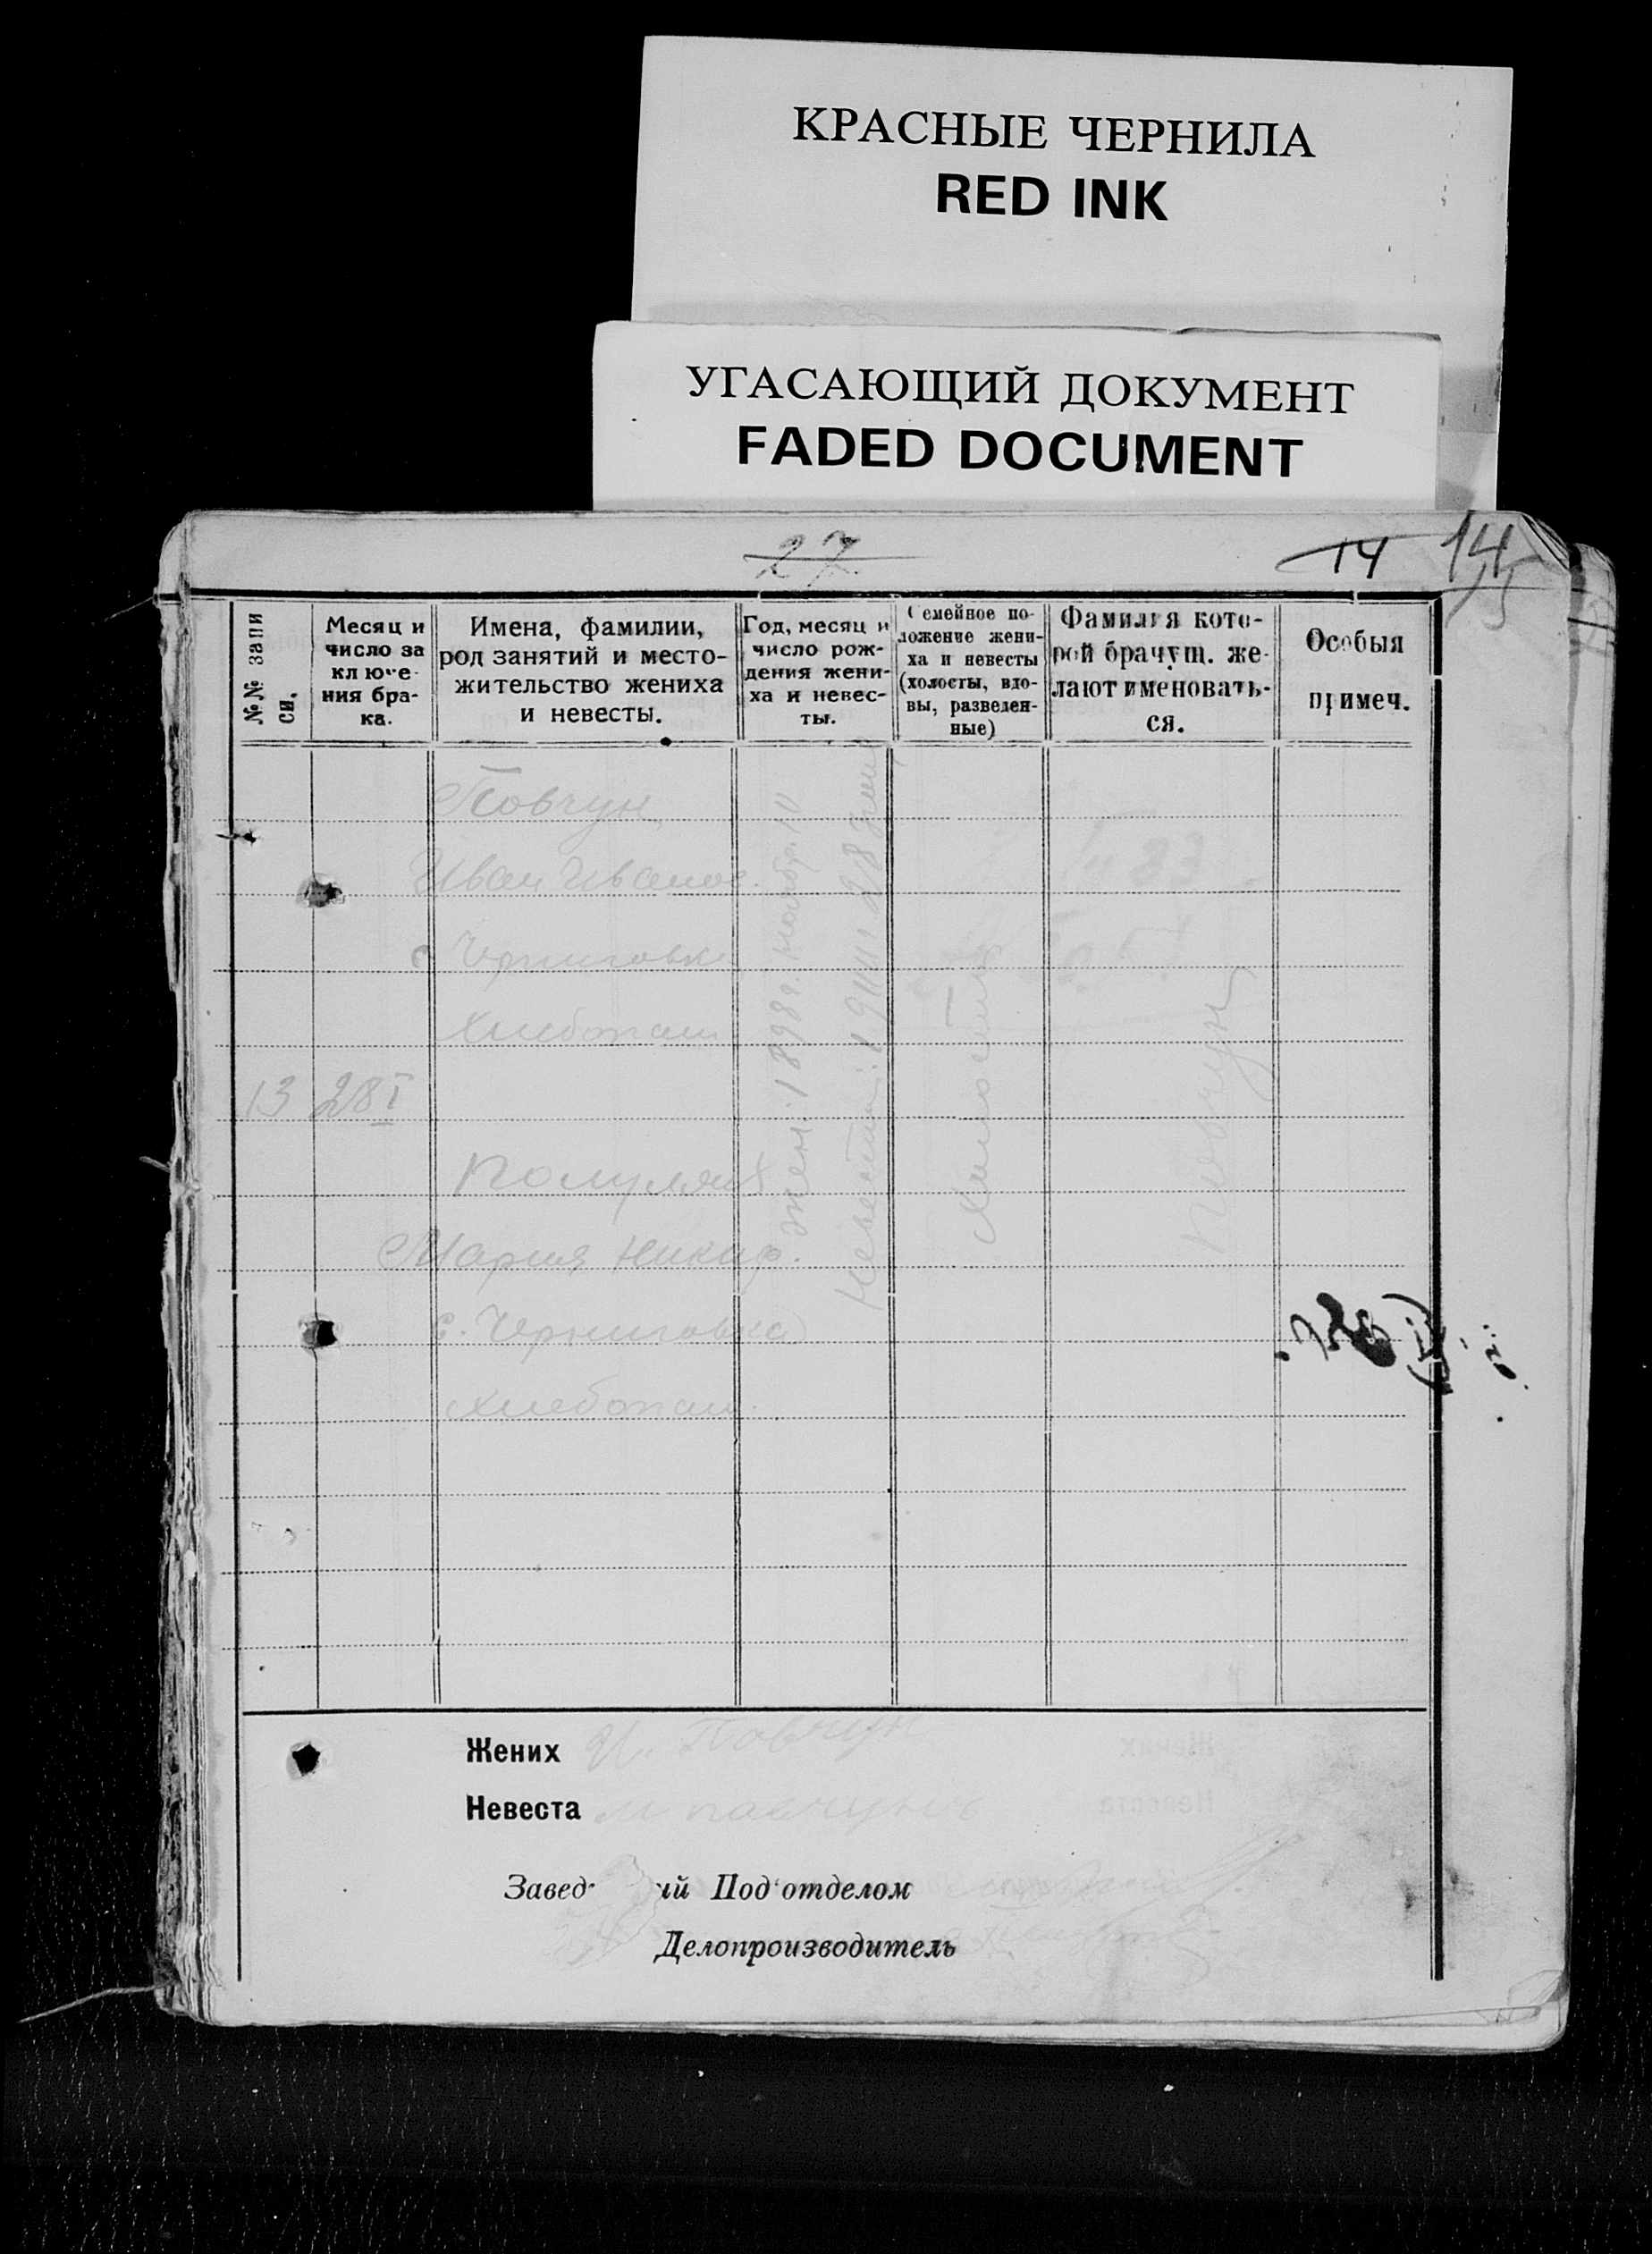 КРАСНЫЕ ЧЕРНИЛА
RED INK
УГАСАЮЩИЙ ДОКУМЕНТ
FADED DOCUMENT
27.
14 14
15
№№ запи
си.
Месяц и
число за
ключе-
ния бра-
ка.
Имена, фамилии,
род занятий и место-
жительство жениха
и невесты.
Год, месяц и
число рож-
дения жени-
ха и невес-
ты.
Семейное по-
ложение жени-
ха и невесты
(холосты, вдо-
вы, разведен-
ные)
Фамилия кото-
рой брачущ. же-
лают именовать-
ся.
Особыя
примеч.
Повчун
Иван Иванов.
с Черниговка
Хлебопаш.
13 28 I
Мария Никиф.
с. Черниговка
Хлебопаш.
Жен. 1898 г. Ноябр. 10
Невеста:
Повчун
Жених И. Повчун
Невеста
Завед ий Под'отделом
Делопроизводитель